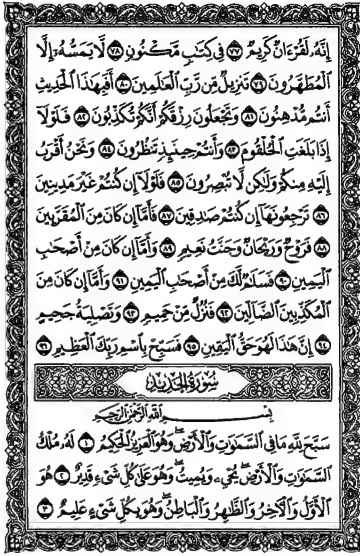 إِنَّهُۥ لَقُرْءَانٌ كَرِيمٌ ﴿٧٧﴾ فِى كِتَٰبٍ مَّكْنُونٍ ﴿٧٨﴾ لَّا يَمَسُّهُۥٓ إِلَّا
ٱلْمُطَهَّرُونَ ﴿٧٩﴾ تَنزِيلٌ مِّن رَّبِّ ٱلْعَٰلَمِينَ ﴿٨٠﴾ أَفَبِهَٰذَا ٱلْحَدِيثِ
أَنتُم مُّدْهِنُونَ ﴿٨١﴾ وَتَجْعَلُونَ رِزْقَكُمْ أَنَّكُمْ تُكَذِّبُونَ ﴿٨٢﴾ فَلَوْلَآ
إِذَا بَلَغَتِ ٱلْحُلْقُومَ ﴿٨٣﴾ وَأَنتُمْ حِينَئِذٍ تَنظُرُونَ ﴿٨٤﴾ وَنَحْنُ أَقْرَبُ
إِلَيْهِ مِنكُمْ وَلَٰكِن لَّا تُبْصِرُونَ ﴿٨٥﴾ فَلَوْلَآ إِن كُنتُمْ غَيْرَ مَدِينِينَ
﴿٨٦﴾ تَرْجِعُونَهَآ إِن كُنتُمْ صَٰدِقِينَ ﴿٨٧﴾ فَأَمَّآ إِن كَانَ مِنَ ٱلْمُقَرَّبِينَ
﴿٨٨﴾ فَرَوْحٌ وَرَيْحَانٌ وَجَنَّتُ نَعِيمٍ ﴿٨٩﴾ وَأَمَّآ إِن كَانَ مِنْ أَصْحَٰبِ
ٱلْيَمِينِ ﴿٩٠﴾ فَسَلَٰمٌ لَّكَ مِنْ أَصْحَٰبِ ٱلْيَمِينِ ﴿٩١﴾ وَأَمَّآ إِن كَانَ مِنَ
ٱلْمُكَذِّبِينَ ٱلضَّآلِّينَ ﴿٩٢﴾ فَنُزُلٌ مِّنْ حَمِيمٍ ﴿٩٣﴾ وَتَصْلِيَةُ جَحِيمٍ
﴿٩٤﴾ إِنَّ هَٰذَا لَهُوَ حَقُّ ٱلْيَقِينِ ﴿٩٥﴾ فَسَبِّحْ بِٱسْمِ رَبِّكَ ٱلْعَظِيمِ ﴿٩٦﴾
سُورَةُ الحَدِيد
بِسْمِ ٱللَّهِ ٱلرَّحْمَٰنِ ٱلرَّحِيمِ
سَبَّحَ لِلَّهِ مَا فِى ٱلسَّمَٰوَٰتِ وَٱلْأَرْضِ ۖ وَهُوَ ٱلْعَزِيزُ ٱلْحَكِيمُ ﴿١﴾ لَهُۥ مُلْكُ
ٱلسَّمَٰوَٰتِ وَٱلْأَرْضِ ۖ يُحْىِۦ وَيُمِيتُ ۖ وَهُوَ عَلَىٰ كُلِّ شَىْءٍ قَدِيرٌ ﴿٢﴾ هُوَ
ٱلْأَوَّلُ وَٱلْءَاخِرُ وَٱلظَّٰهِرُ وَٱلْبَاطِنُ ۖ وَهُوَ بِكُلِّ شَىْءٍ عَلِيمٌ ﴿٣﴾